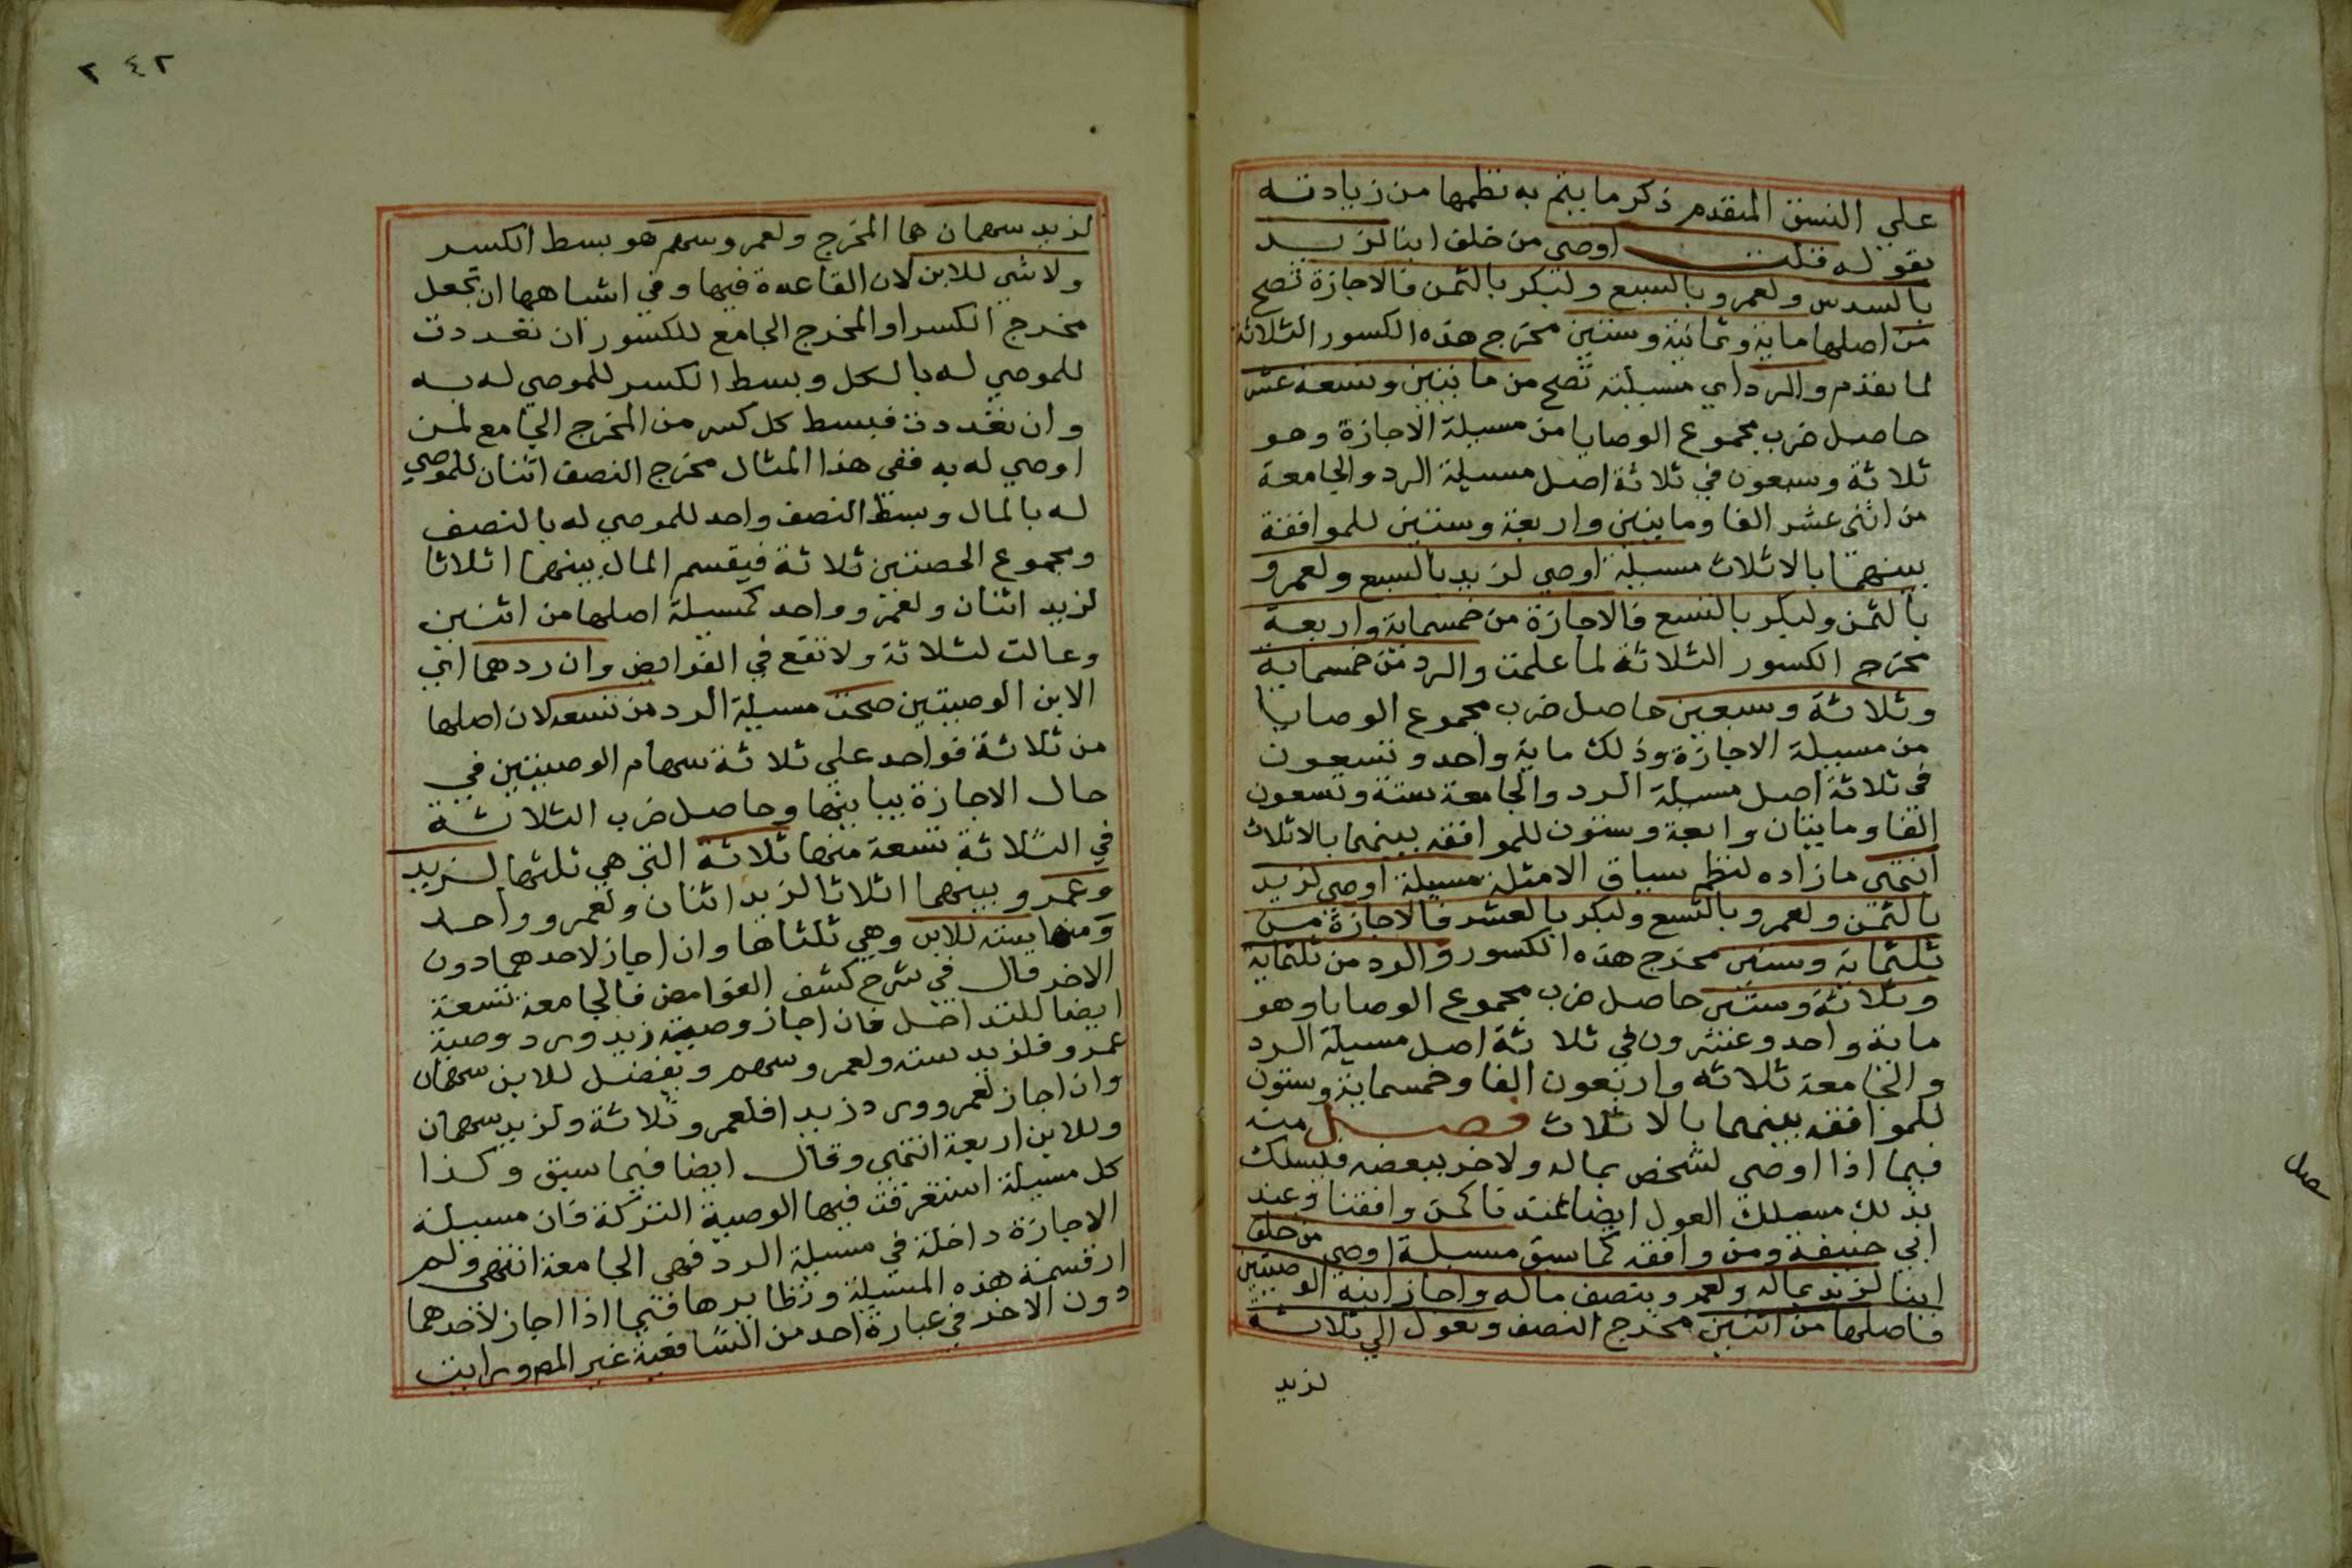 علي النسق المتقدم ذكر ما يتم به نظمها من زيادته
بقوله قلت اوصي من خلف ابنا لزيد
بالسدس ولعمرو بالسبع ولبكر بالثمن فالاجازة تصح
من اصلها ماية وثمانية وستين مخرج هذه الكسور الثلاثة
لما تقدم والرد اي مسيلته تصح من مايتين وتسعة عشر
حاصل ضرب مجموع الوصايا من مسيلة الاجازة وهو
ثلاثة وسبعون في ثلاثة اصل مسيلة الرد والجامعة
من اثني عشر الفا ومايتين واربعة وستين للموافقة
بينهما بالاثلاث مسيلة اوصي لزيد بالسبع ولعمرو
بالثمن ولبكر بالتسع فالاجازة من خمسماية واربعة
مخرج الكسور الثلاثة لما علمت والرد من خمسماية
وثلاثة وسبعين حاصل ضرب مجموع الوصايا
من مسيلة الاجازة وذلك ماية واحد وتسعون
في ثلاثة اصل مسيلة الرد والجامعة ستة وتسعون
الفا ومايتان واربعة وستون للموافقة بينهما بالاثلاث
انتهي ما زاده لنظم سياق الامثلة مسيلة اوصي لزيد
بالثمن ولعمرو بالتسع ولبكر بالعشر فالاجازة من
ثلثماية وستين مخرج هذه الكسور والرد من ثلثماية
وثلاثة وستين حاصل ضرب مجموع الوصايا وهو
ماية واحد وعشرون في ثلاثة اصل مسيلة الرد
والجامعة ثلاثه واربعون الفا وخمسماية وستون
للموافقه بينهما بالاثلاث فصل منه
فيما اذا اوصي لشخص بماله ولاخر ببعضه فيسلك
بذلك مسلك العول ايضا عندنا كمن وافقنا وعند
ابي حنيفة ومن وافقه كما سبق مسيلة اوصي من خلف
ابنا لزيد بماله ولعمرو بنصف ماله واجاز ابنه الوصيتين
فاصلها من اثنين مخرج النصف وتعول الي ثلاثة
لزيد
صل
٢٤٢
لزيد سهمان هما المخرج ولعمرو سهم هو بسط الكسر
ولا شي للابن لان القاعدة فيها وفي اشباهها ان تجعل
مخرج الكسر او المخرج الجامع للكسور ان تعددت
للموصي له بالكل وبسط الكسر للموصي له به
وان تعددت فبسط كل كسر من المخرج الجامع لمن
اوصي له به ففي هذا المثال مخرج النصف اثنان للموصي
له بالمال وبسط النصف واحد للموصي له بالنصف
ومجموع الحصتين ثلاثة فيقسم المال بينهما اثلاثا
لزيد اثنان ولعمرو واحد كمسيلة اصلها من اثنين
وعالت لثلاثة ولا تقع في الفرايض وان ردهما اي
الابن الوصيتين صحت مسيلة الرد من تسعة لان اصلها
من ثلاثة فواحد علي ثلاثة سهام الوصيتين في
حال الاجازة يباينها وحاصل ضرب الثلاثة
في الثلاثة تسعة منها ثلاثة التي هي ثلثها لزيد
وعمرو بينهما اثلاثا لزيد اثنان ولعمرو واحد
ومنها ستة للابن وهي ثلثاها وان اجاز لاحدهما دون
الاخر قال في شرح كشف الغوامض فالجامعة تسعة
ايضا للتداخل فان اجاز وصية زيد ورد وصية
عمرو فلزيد ستة ولعمرو سهم ويفضل للابن سهمان
وان اجاز لعمرو ورد زيدا فلعمرو ثلاثة ولزيد سهمان
وللابن اربعة انتهي وقال ايضا فيما سبق وكذا
كل مسيلة استغرقت فيها الوصية التركة فان مسيلة
الاجازة داخلة في مسيلة الرد فهي الجامعة انتهي ولم
ار قسمة هذه المسيلة ونظايرها فيما اذا اجاز لاحدهما
دون الاخر في عبارة احد من الشافعية غير المص ورايت